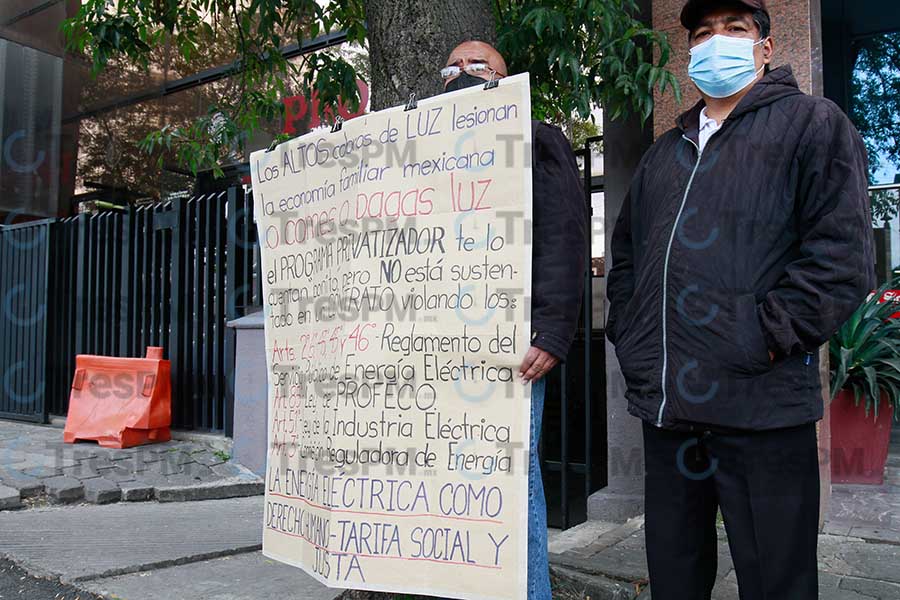 Los ALTOS cobros de LUZ lesionan
la economía familiar mexicana
o comes o pagas luz
el PROGRAMA PRIVATIZADOR te lo
cuentan bonito, pero NO está susten-
tado en un CONTRATO violando los:
Arts. 2° y 46° Reglamento del
Servicio de Energía Eléctrica
Ley de PROFECO,
Art. 51 Ley de la Industria Eléctrica
Comisión Reguladora de Energía
LA ENERGÍA ELÉCTRICA COMO
DERECHO HUMANO-TARIFA SOCIAL Y
JUSTA
TresPM